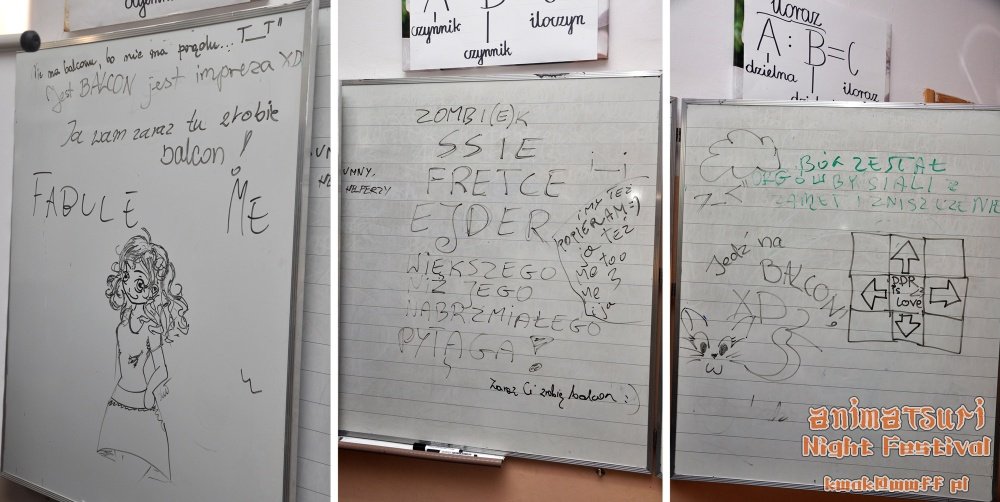 czynnik
Nie ma balconu, bo nie ma prądu... T_T"
Jest BALCON jest impreza XD
Ja wam zaraz tu zrobię
balcon!
FABULE ME
A B
czynnik iloczyn
czynnik
UMNY.
HELPERZY
ZOMBI(E)K
SSIE
FRETCE
EJDER
WIĘKSZEGO
NIŻ JEGO
NABRZMIAŁEGO
PYTĄGA!
i_i
i my też
POPIERAM =)
ja też
me too
me 3
me
i ja
Zaraz Ci zrobię balcon :)
iloraz
A : B = C
dzielna iloraz
BÓR ZESŁAŁ
ZAMĘT I ZNISZCZENIE
Jedź na
BALCON!
XD
DDR
is
Love
animatsuri
Night Festival